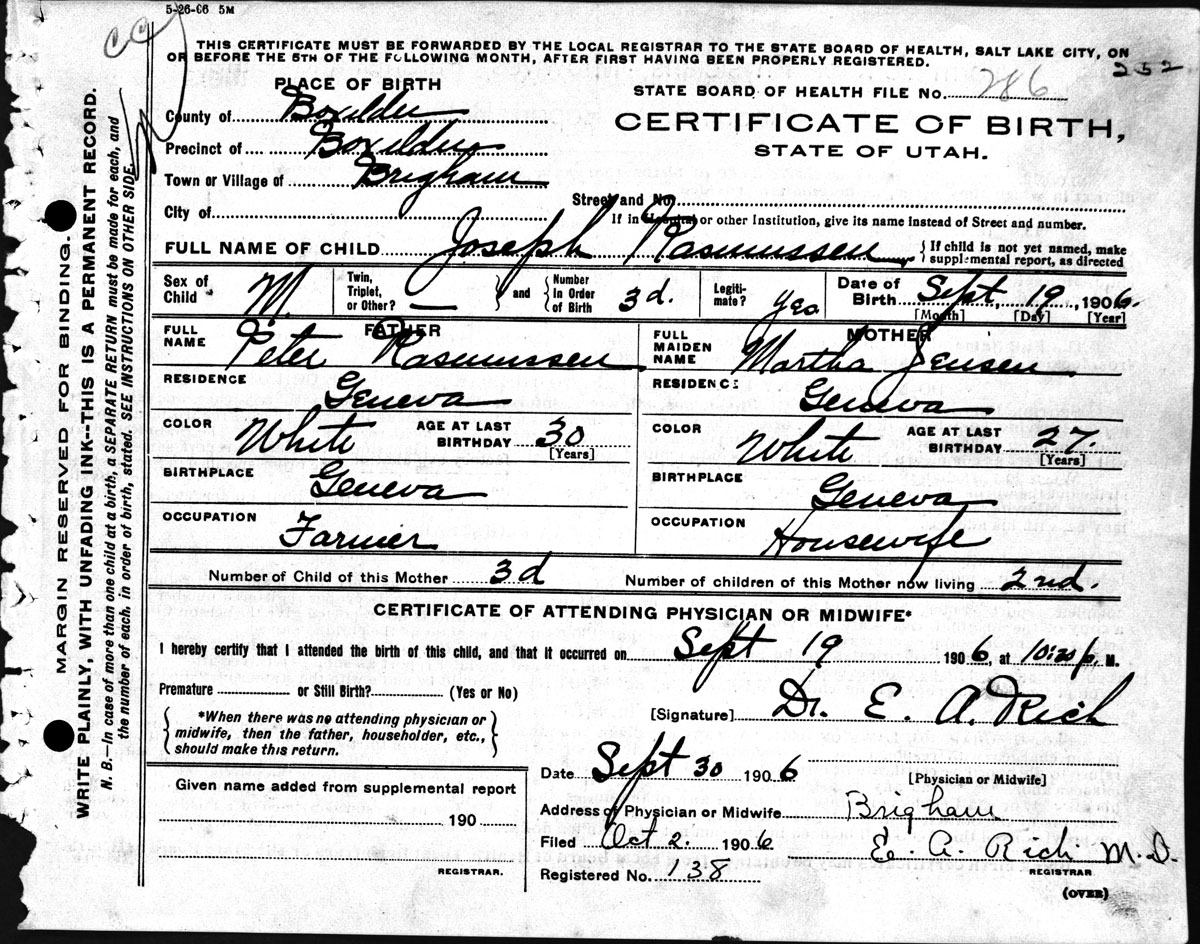 5-26-06 5M
THIS CERTIFICATE MUST BE FORWARDED BY THE LOCAL REGISTRAR TO THE STATE BOARD OF HEALTH, SALT LAKE CITY, ON
OR BEFORE THE 5TH OF THE FOLLOWING MONTH, AFTER FIRST HAVING BEEN PROPERLY REGISTERED.
252
PLACE OF BIRTH
STATE BOARD OF HEALTH FILE No. 286
County of Boxelder
CERTIFICATE OF BIRTH,
Precinct of Boxelder
STATE OF UTAH.
Town or Village of Brigham
Street and No.
City of
If in Hospital or other Institution, give its name instead of Street and number.
FULL NAME OF CHILD Joseph Rasmussen
If child is not yet named, make
supplemental report, as directed
Sex of Child M. Twin, Triplet, or Other? — and Number In Order of Birth 3d. Legiti-mate? Yes Date of Birth Sept. 19, 1906.
[Month] [Day] [Year]
FATHER
MOTHER
FULL NAME Peter Rasmussen
FULL MAIDEN NAME Martha Jensen
RESIDENCE Geneva
RESIDENCE Geneva
COLOR White AGE AT LAST BIRTHDAY 30 [Years]
COLOR White AGE AT LAST BIRTHDAY 27. [Years]
BIRTHPLACE Geneva
BIRTHPLACE Geneva
OCCUPATION Farmer
OCCUPATION Housewife
Number of Child of this Mother 3d Number of children of this Mother now living 2nd.
CERTIFICATE OF ATTENDING PHYSICIAN OR MIDWIFE*
I hereby certify that I attended the birth of this child, and that it occurred on Sept 19 1906, at 10:30 p. M.
Premature or Still Birth? (Yes or No)
[Signature] Dr. E. A. Rich
*When there was no attending physician or
midwife, then the father, householder, etc.,
should make this return.
Date Sept 30 1906
[Physician or Midwife]
Given name added from supplemental report
190
REGISTRAR.
Address of Physician or Midwife Brigham
Filed Oct 2. 1906 E. A. Rich M.D.
Registered No. 138 REGISTRAR
(OVER)
MARGIN RESERVED FOR BINDING.
WRITE PLAINLY, WITH UNFADING INK--THIS IS A PERMANENT RECORD.
N. B.—In case of more than one child at a birth, a SEPARATE RETURN must be made for each, and
the number of each, in order of birth, stated. SEE INSTRUCTIONS ON OTHER SIDE.